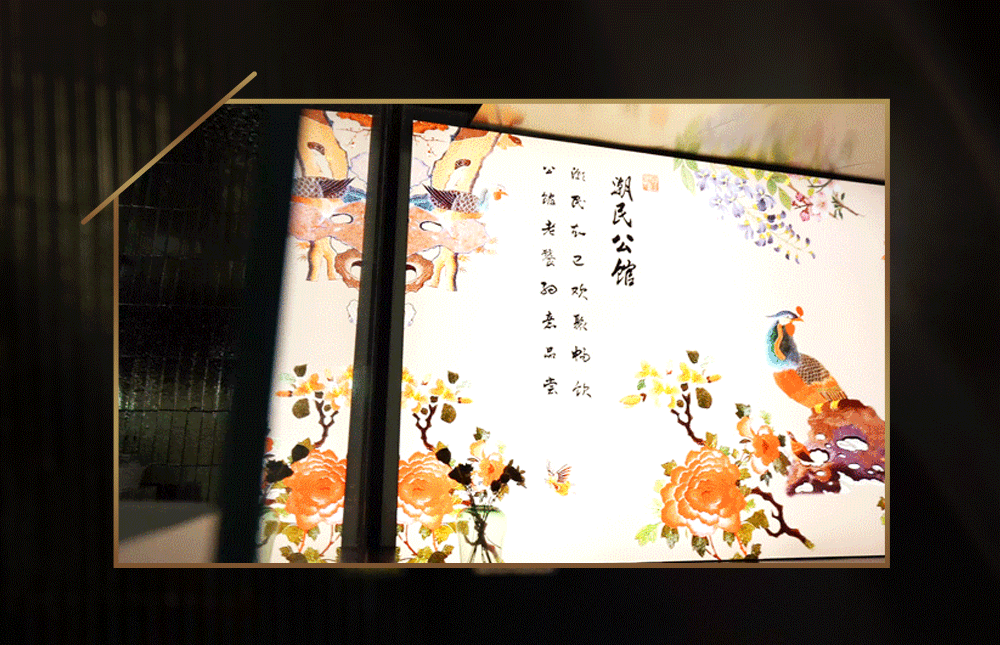 潮民公馆
潮民知己欢聚畅饮
公馆老饕意品尝